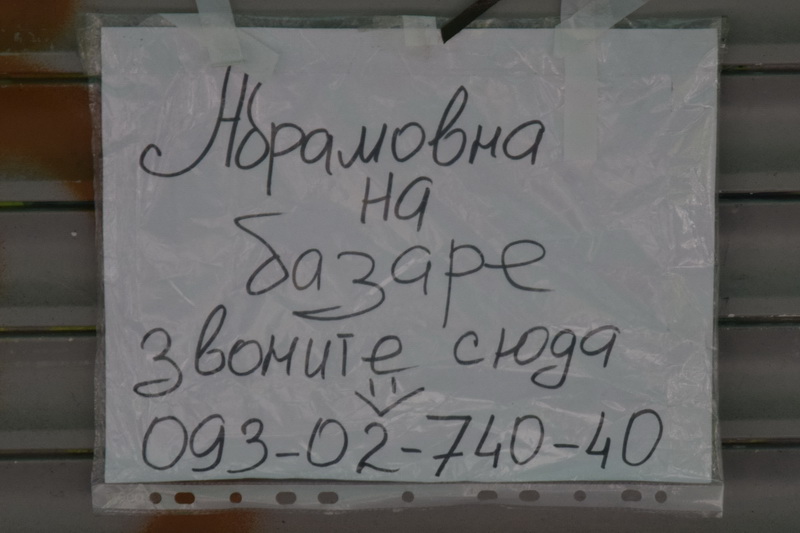 Абрамовна
на
базаре
звоните сюда
093-02-740-40